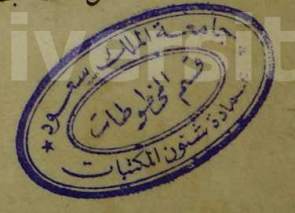 iversit
جامعة الملك سعود
قسم المخطوطات
عمادة شئون المكتبات